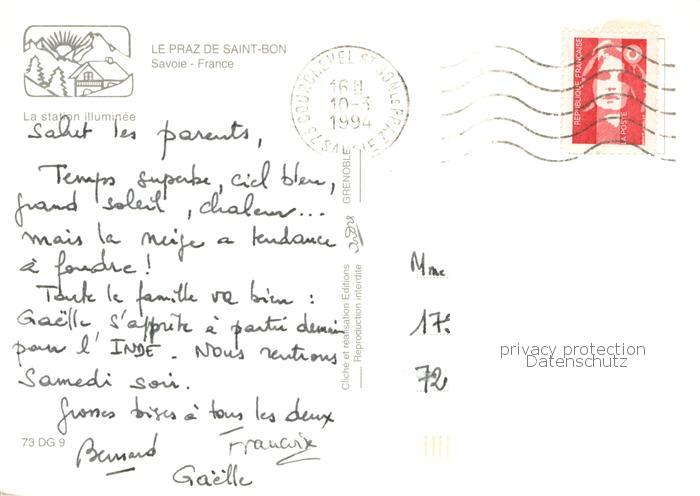 LE PRAZ DE SAINT-BON
Savoie - France
La station illuminée
Salut les parents,
Temps superbe, ciel bleu,
grand soleil, chaleur...
mais la neige a tendance
à fondre !
Toute la famille va bien :
Gaëlle s'apprête à partir demain
pour l'INDE. Nous rentrons
Samedi soir.
Grosses bises à tous les deux
Bernard Francoise
Gaëlle
73 DG 9
Cliché et réalisation Editions GRENOBLE
Reproduction interdite
73 COURCHEVEL ST BON LE PRAZ
16H
10-3
1994
SAVOIE
REPUBLIQUE FRANÇAISE
LA POSTE
Mme
17
72
privacy protection
Datenschutz